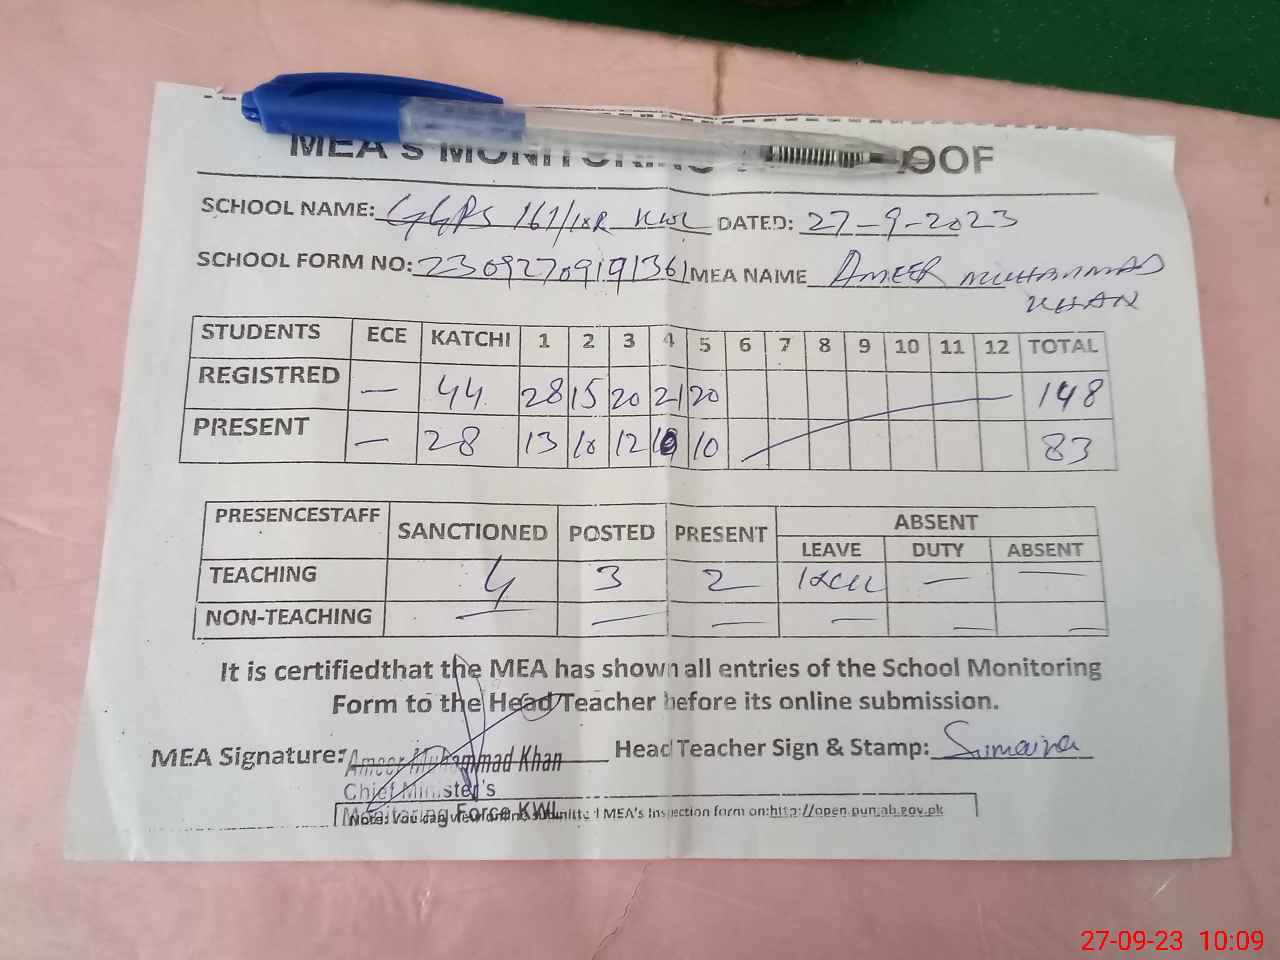 MEA'S MONITORING OOF
SCHOOL NAME: GGPS 161/10R KWL DATED: 27-9-2023
SCHOOL FORM NO: 23092709191361 MEA NAME AMEER MUHAMMAD
KHAN
STUDENTS ECE KATCHI 1 2 3 4 5 6 7 8 9 10 11 12 TOTAL
REGISTRED — 44 28 15 20 21 20 148
PRESENT — 28 13 10 12 10 10 83
PRESENCESTAFF SANCTIONED POSTED PRESENT ABSENT
LEAVE DUTY ABSENT
TEACHING 4 3 2 — —
NON-TEACHING — — — — — —
It is certifiedthat the MEA has shown all entries of the School Monitoring
Form to the Head Teacher before its online submission.
MEA Signature: Ameer Muhammad Khan Head Teacher Sign & Stamp: Sumaira
Chief Minister's
Monitoring Force KWL
Note: You can view online submitted MEA's Inspection form on:http://open.punjab.gov.pk
27-09-23 10:09